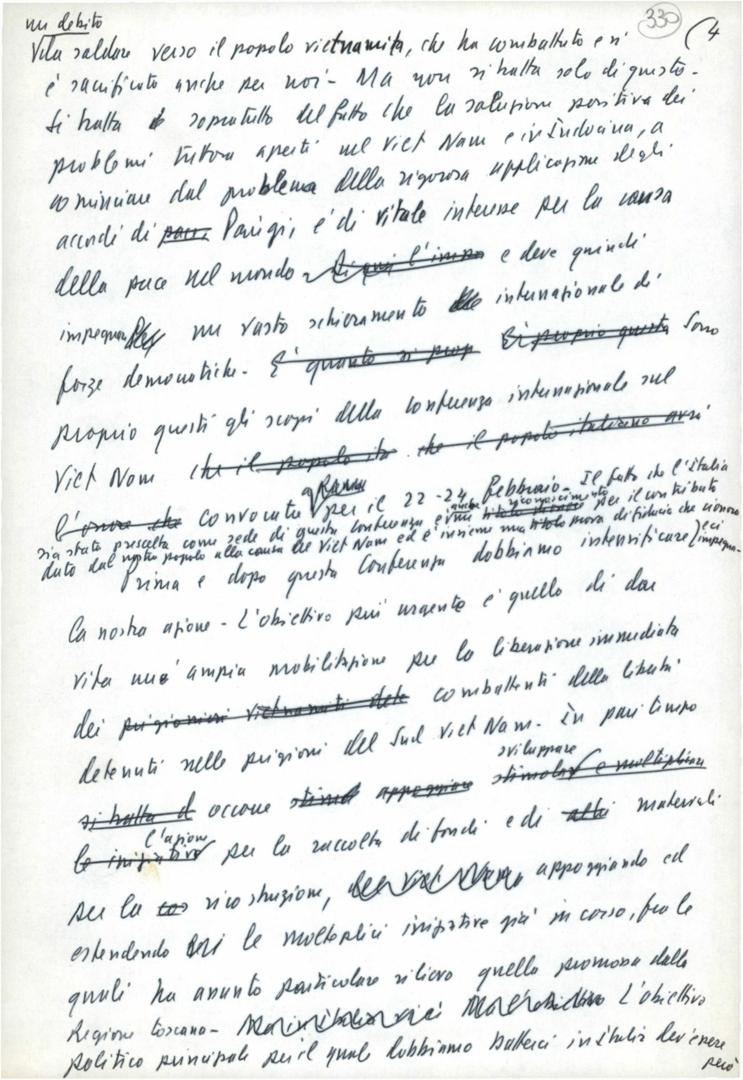 330
(4
un debito
da saldare verso il popolo vietnamita, che ha combattuto e si
è sacrificato anche per noi - Ma non si tratta solo di questo -
Si tratta soprattutto del fatto che la soluzione positiva dei
problemi tuttora aperti nel Viet Nam e in Indocina, a
cominciare dal problema della rigorosa applicazione degli
accordi di pace, Parigi, è di vitale interesse per la causa
della pace nel mondo Di qui l'impe e deve quindi
impegnare un vasto schieramento internazionale di
forze democratiche - E' quanto si prop Ei proprio questa Sono
proprio questi gli scopi della conferenza internazionale sul
Viet Nam che il popolo ita che il popolo italiano avrà
l'onore che convocata a Roma per il 22-24 febbraio - Il fatto che l'Italia
sia stata prescelta come sede di questa conferenza è anche un riconoscimento per il contributo
dato dal nostro popolo alla causa del Viet Nam ed è insieme una nuova di fiducia che ci onora
e ci impegna -
Prima e dopo questa Conferenza dobbiamo intensificare
la nostra azione - L'obiettivo più urgente è quello di dar
vita una ampia mobilitazione per la liberazione immediata
dei prigionieri vietnamiti dete combattenti della libertà
detenuti nelle prigioni del Sud Viet Nam - In pari tempo
sviluppare
si tratta d occorre stimol appoggiare stimolar e moltiplicare
l'azione
le iniziative per la raccolta di fondi e di altri materiali
per la ricostruzione, del Viet Nam appoggiando ed
estendendo le molteplici iniziative già in corso, fra le
quali ha assunto particolare rilievo quella promossa dalla
Regione toscana - L'obiettivo
politico principale per il quale dobbiamo batterci in Italia dev'essere
però